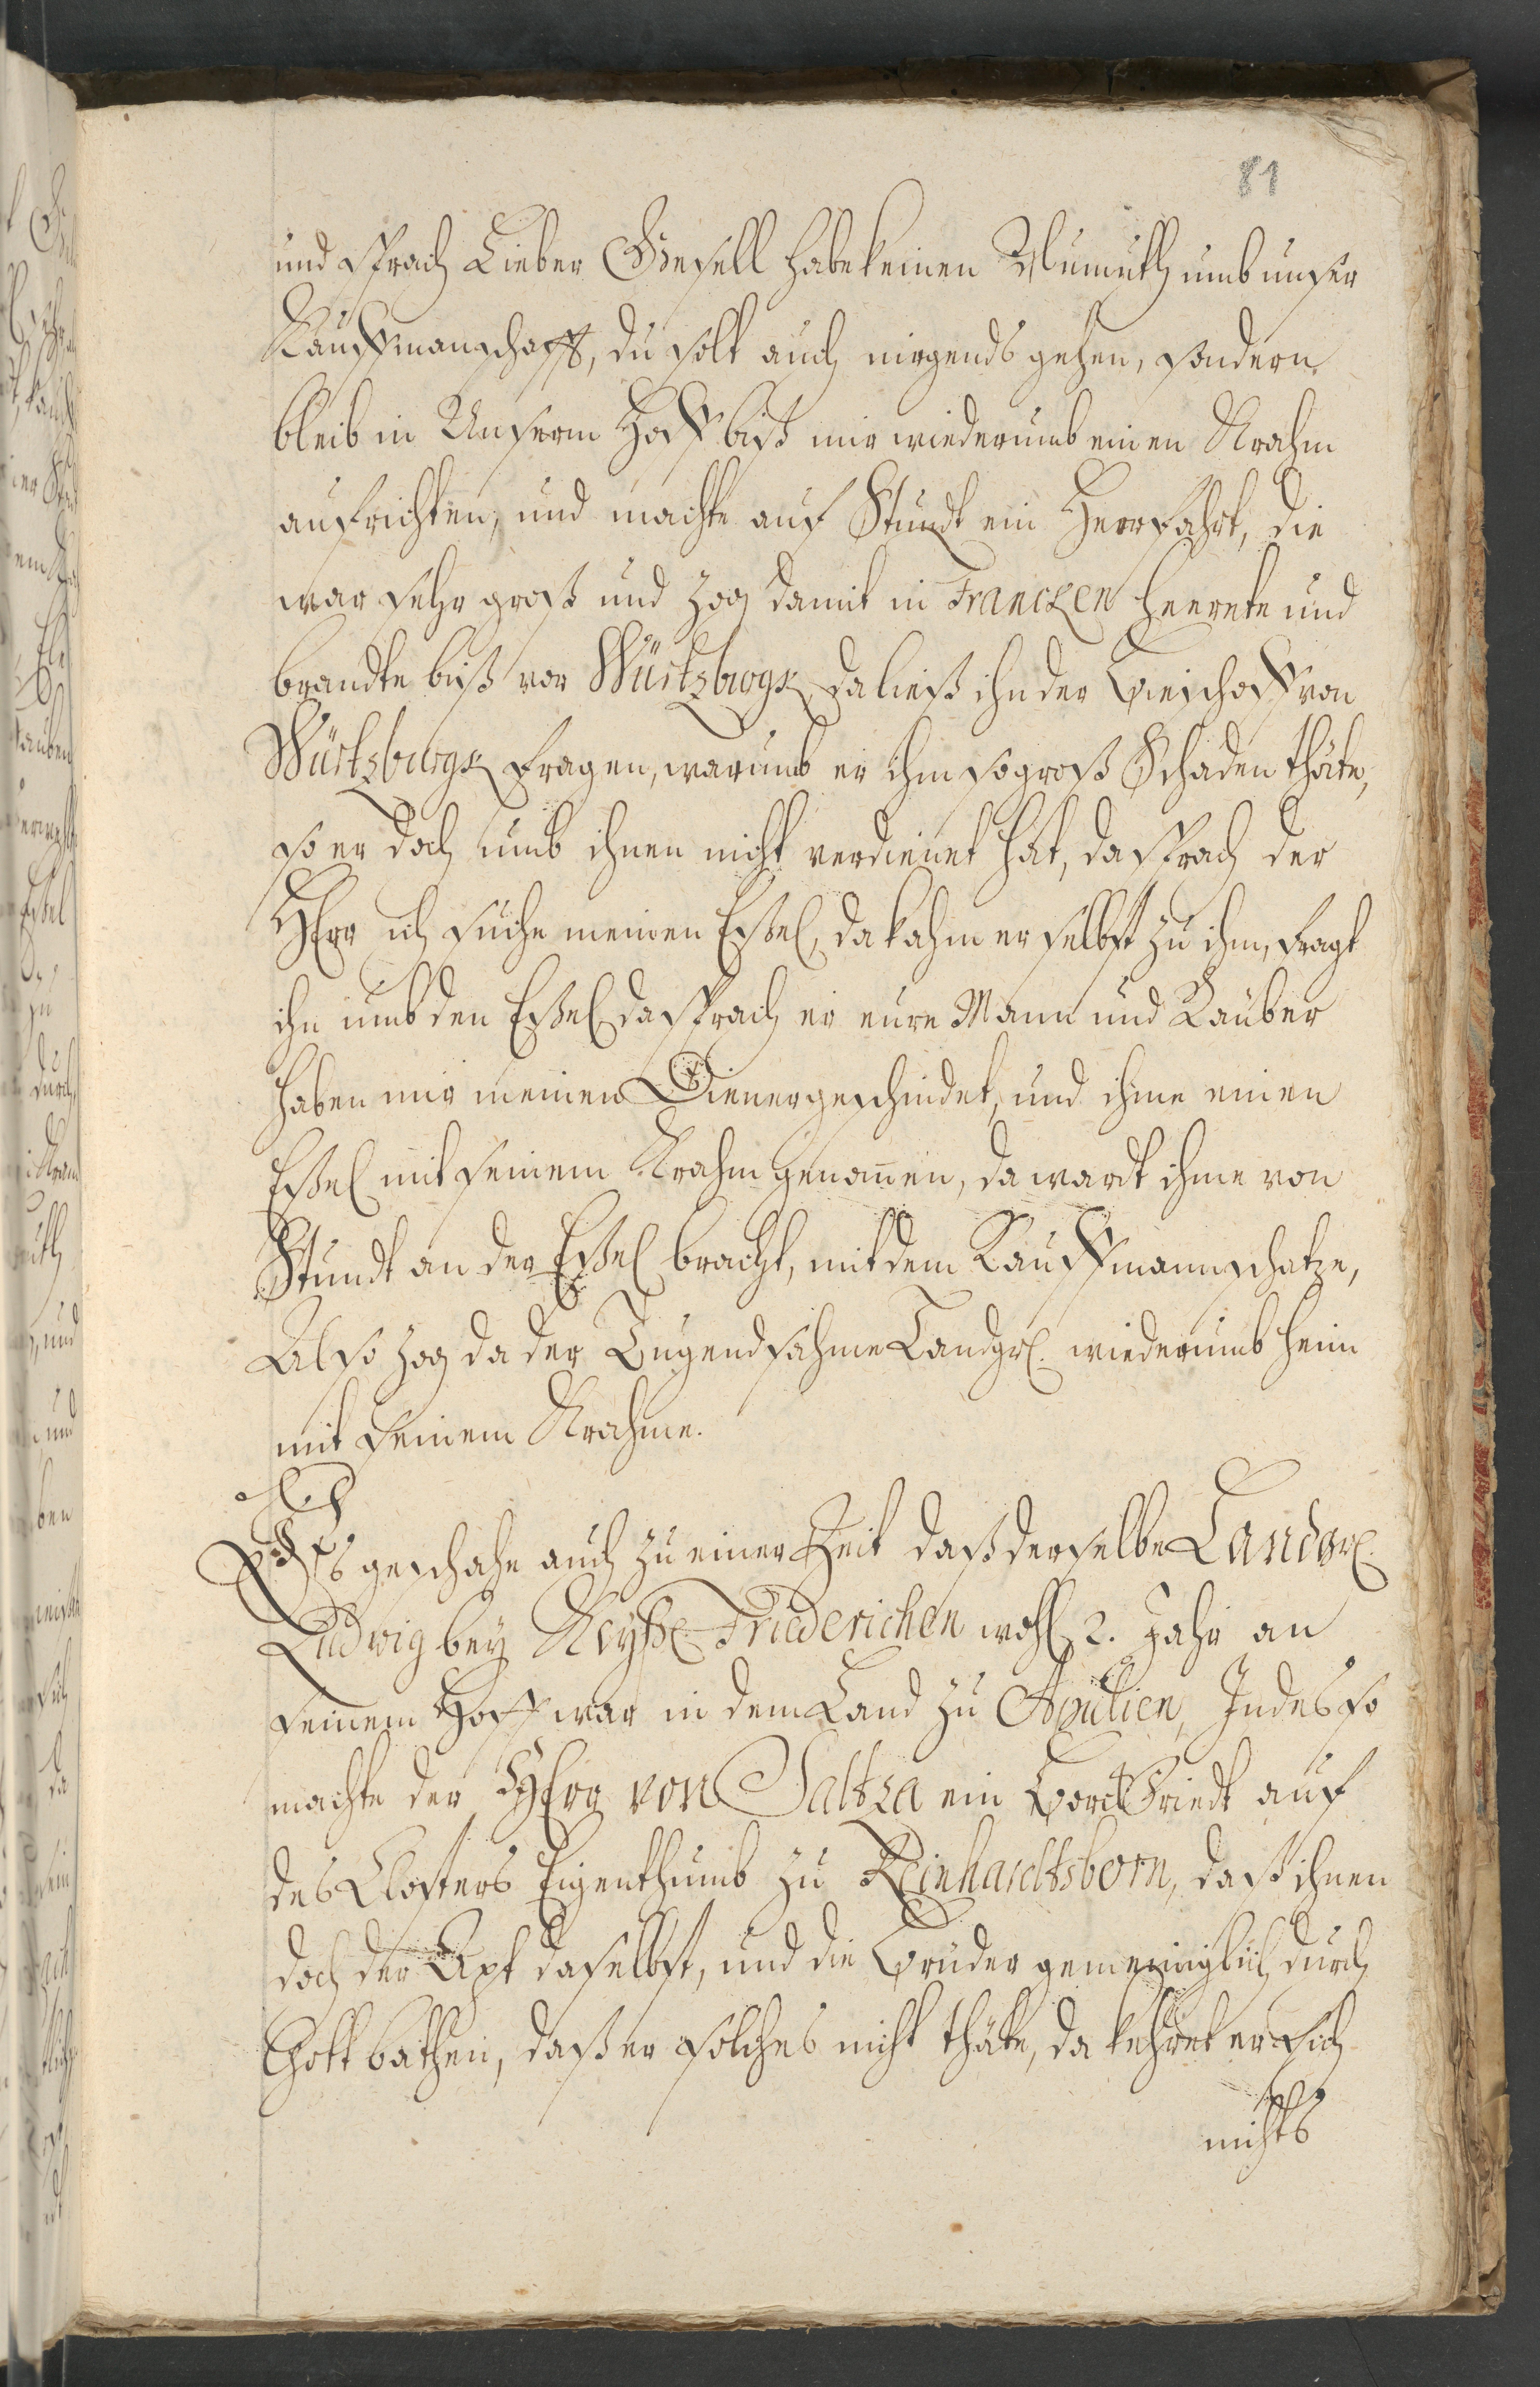 81
und sprach Lieber Gesell habe keinen Unmuth umb unser
Kauffmanschafft, du solt auch nirgends gehen, sondern
bleib in Unserm Hoff biß wir wiederumb einen Krahm
aufrichten, und machte auf Stundt ein Heerfahrt, die
war sehr groß und zog damit in Francken heerete und
brandte biß vor Würtzburgk, da ließ ihn der Bieschoff von
Würtzburgk fragen, warumb er ihm so groß Schaden thäte,
so er doch umb ihnen nicht verdienet hät, da sprach der
HErr ich suche meinen Eßel, da kahm er selbst zu ihm, fragt
ihn umb den Eßel da sprach er eure Mann und Räuber
haben mir meinen Diener geschindet, und ihme einen
Eßel mit seinem Krahm genom̅en, da wardt ihme von
Stundt an der Eßel bracht, mit dem Kauffmannschatze,
Also zog da der Tugendsahme Landgr. wiederumb heim
mit seinem Krahme.
Es geschahe auch zu einer Zeit daß derselbe Landgr.
Ludwig bey Keyß. Friederichen wohl 2. Jahr an
seinem Hoff war in dem Land zu Apulien, Indes so
machte der HErr von Saltza ein Borckfriedt auf
des Closters Eigenthumb zu Reinhardtsborn, daß ihnen
doch der Apt daselbst, und die Brüder gemeiniglich durch
Gott bathen, daß er solches nicht thäte, da kehret er sich
nichts